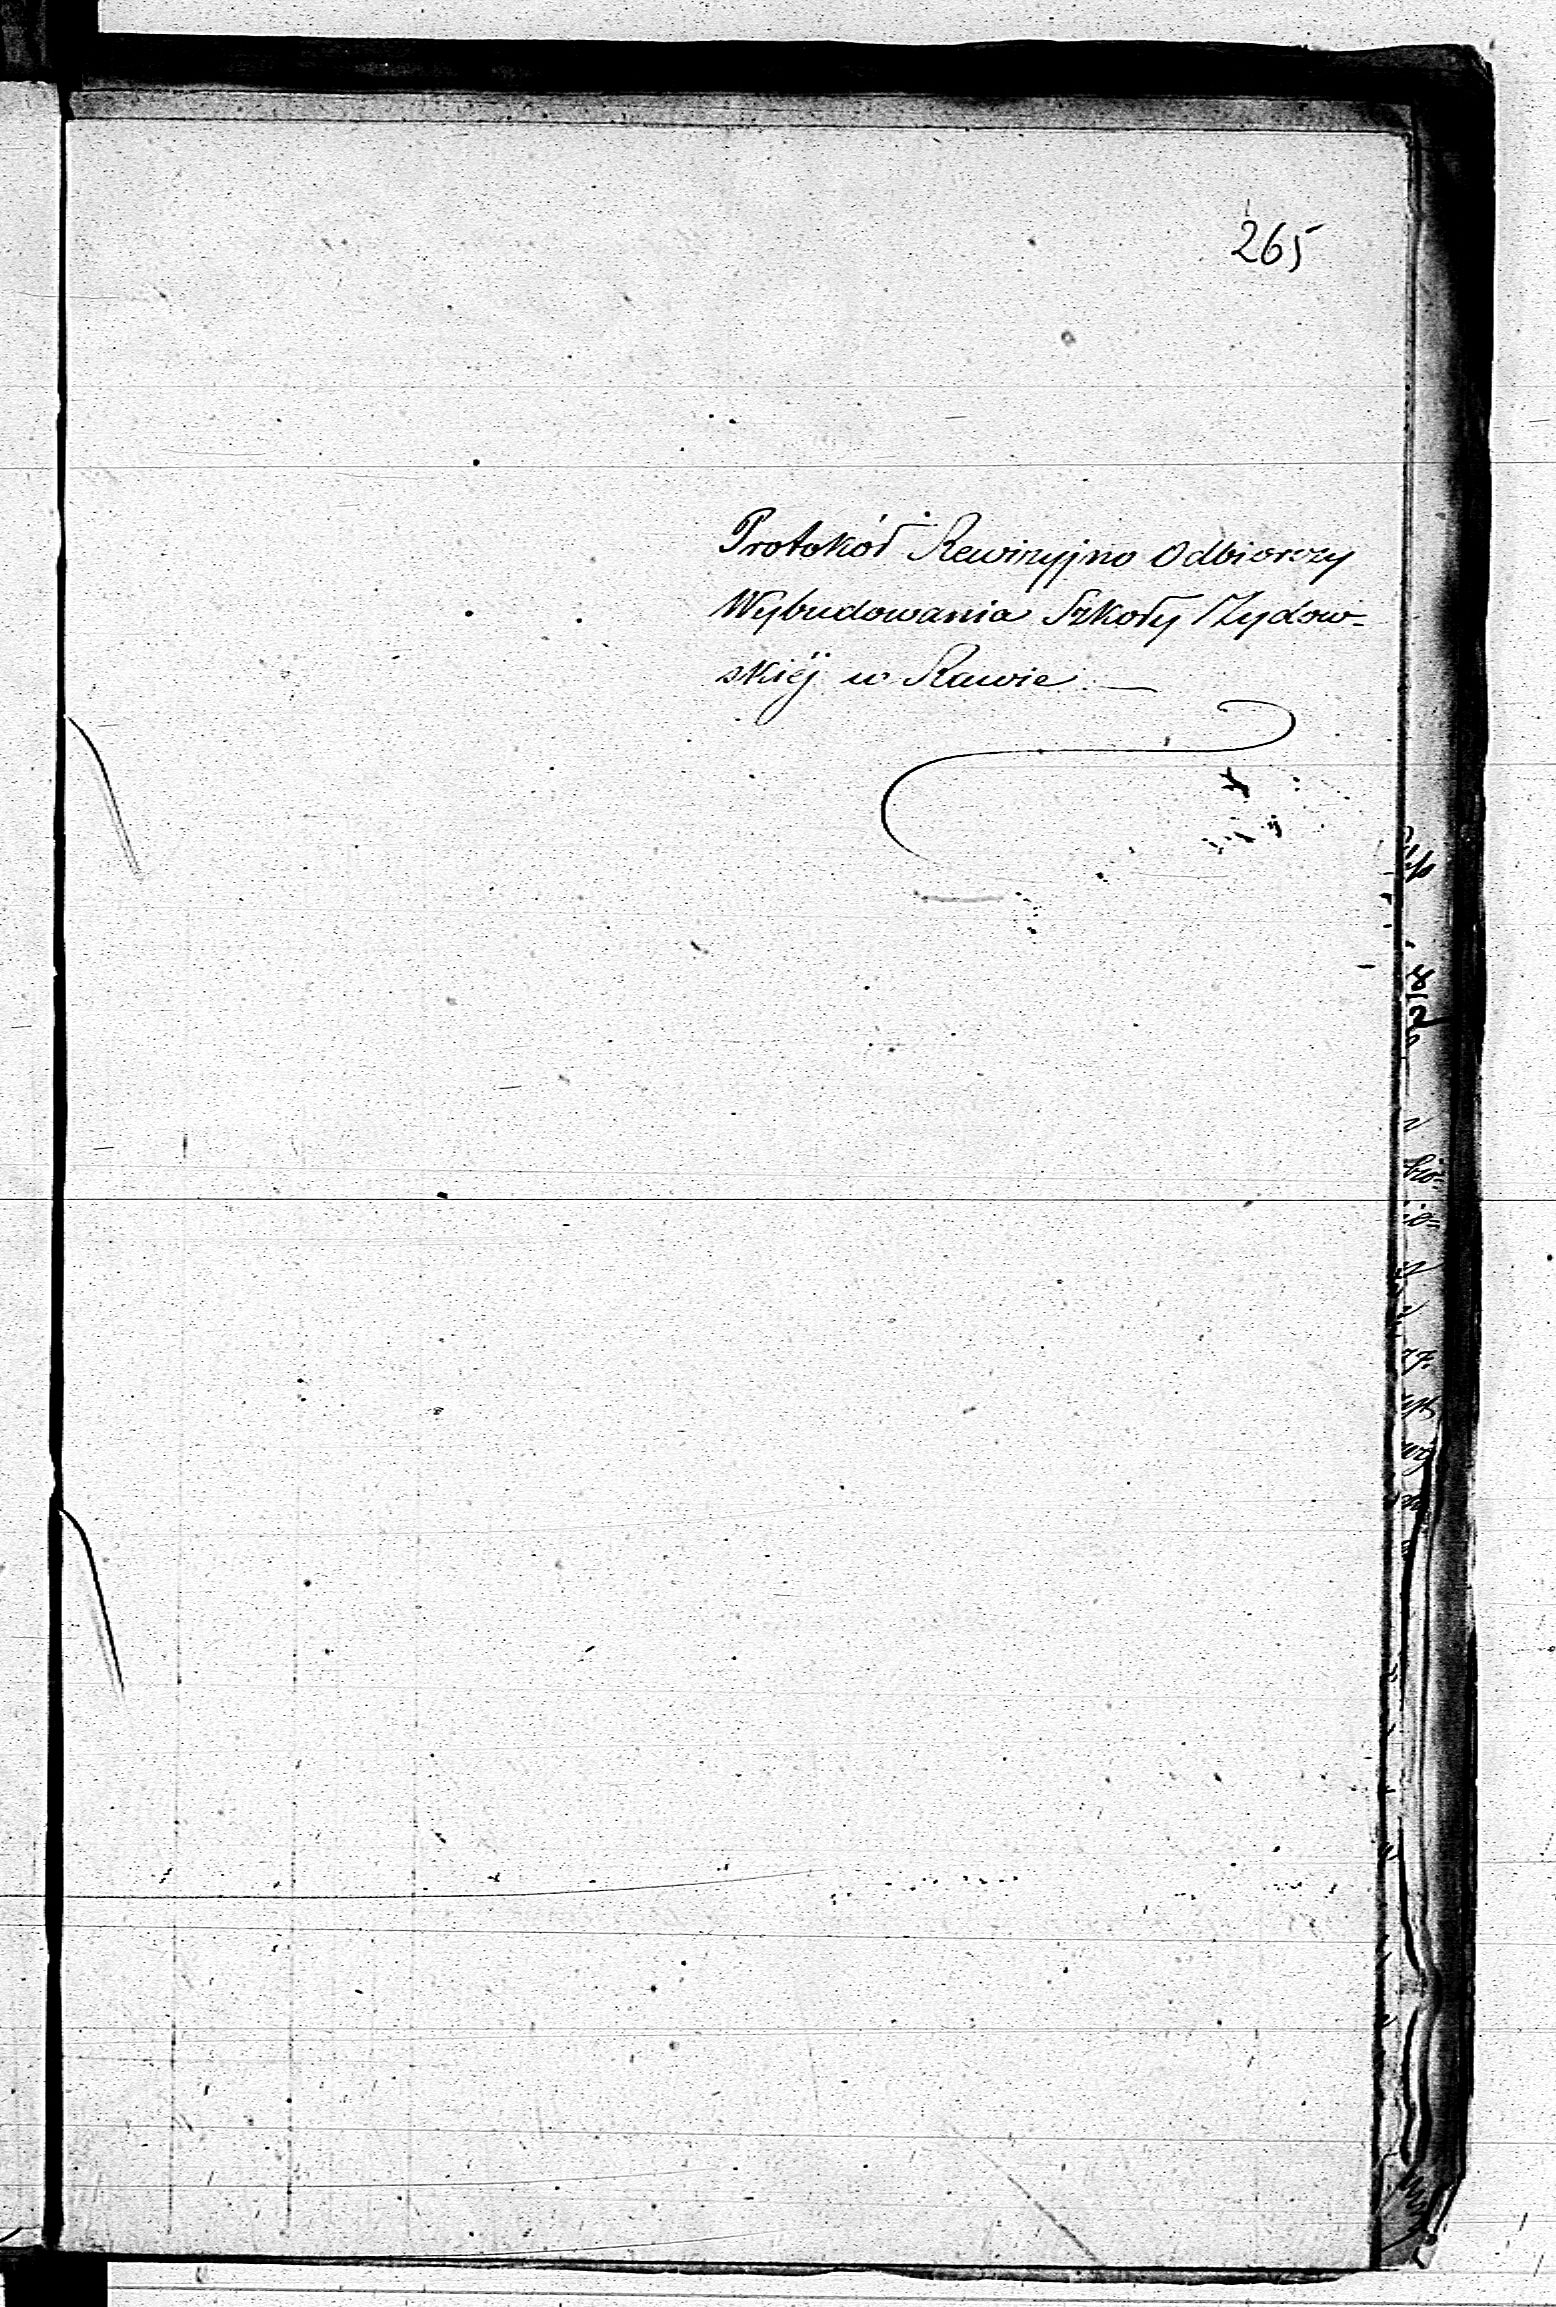 265
Protokół Rewizyjno Odbiorczy
Wybudowania Szkoły Żydow-
skiéj w Rawie. —